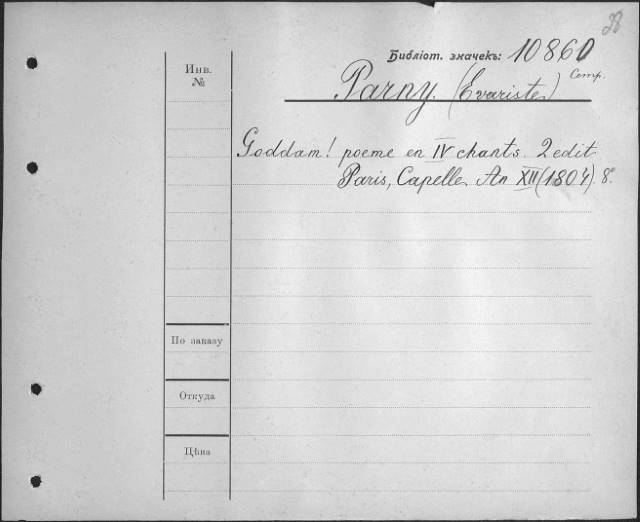 Библіот. значекъ: 10860
Comp.
Инв.
№
Parny. (Evariste)
Goddam! poeme en IV chants. 2 edit
Paris, Capelle. An XII (1804). 8°.
По заказу
Откуда
Цѣна